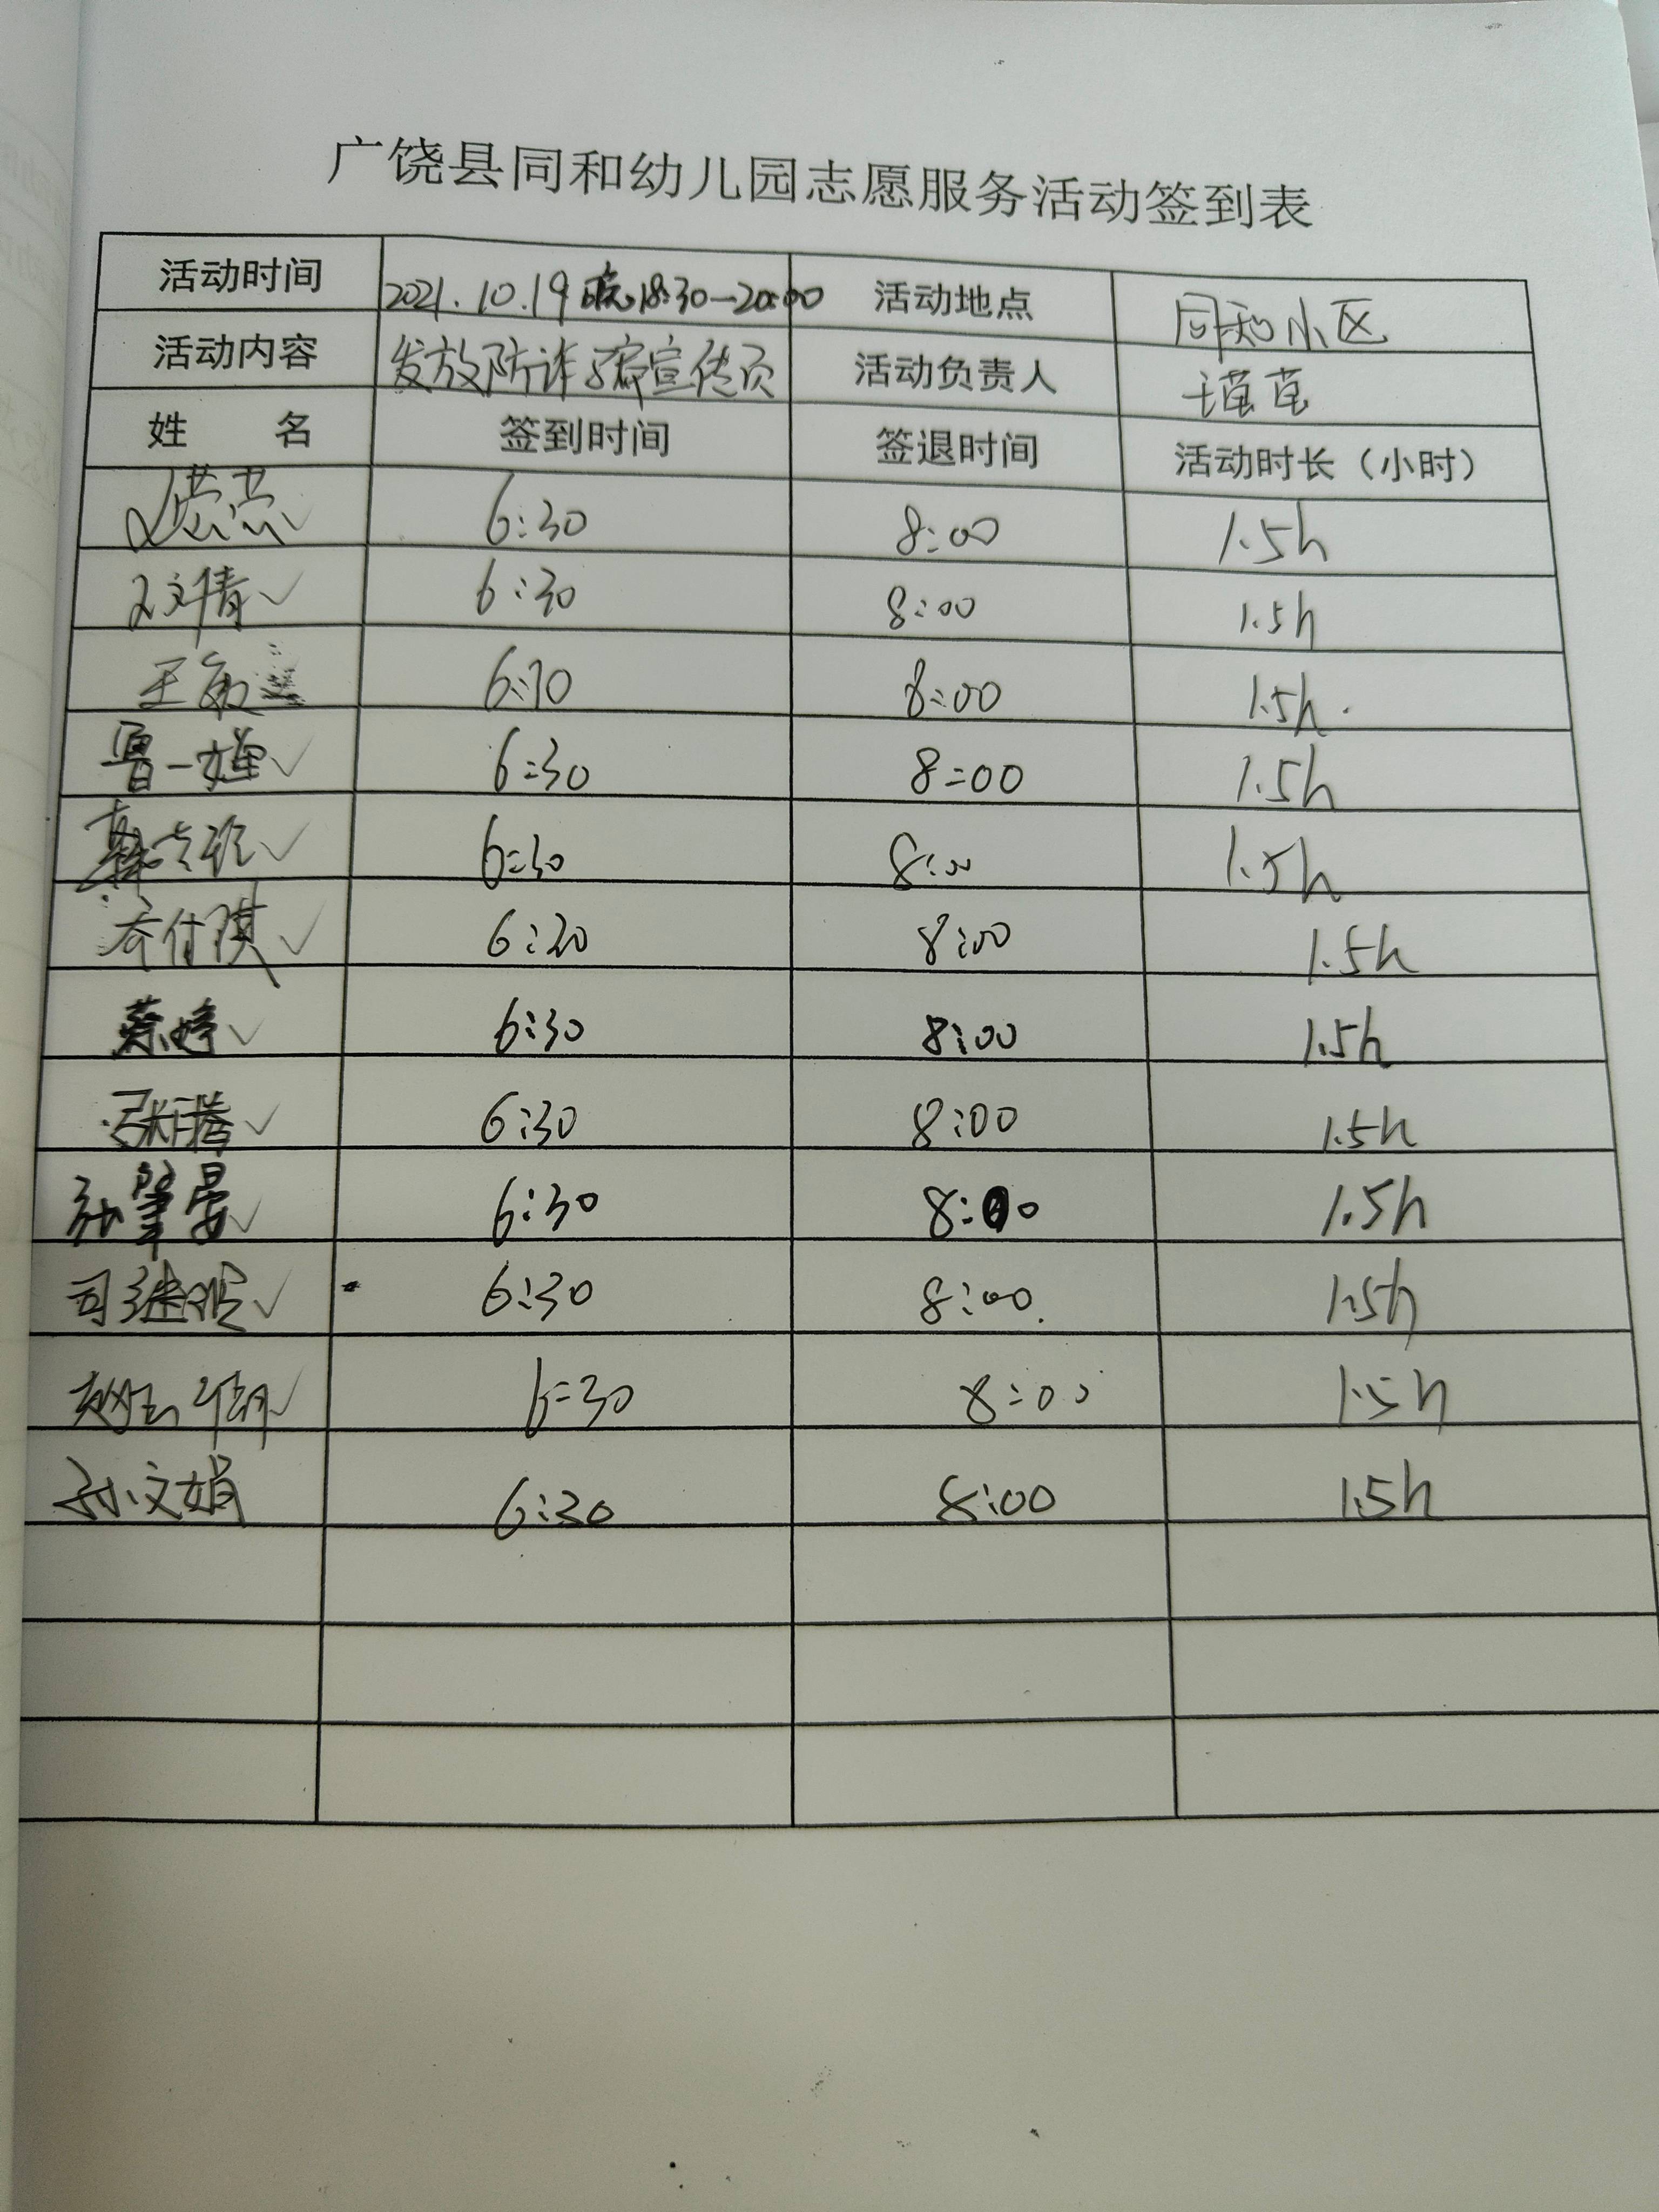 广饶县同和幼儿园志愿服务活动签到表
活动时间 2021.10.19 晚18:30—20:00 活动地点 同和小区
活动内容 发放防诈骗宣传页 活动负责人
姓 名 签到时间 签退时间 活动时长（小时）
6:30 8:00 1.5h
文倩✓ 6:30 8:00 1.5h
王 6:30 8:00 1.5h.
鲁一婵✓ 6:30 8:00 1.5h
✓ 6:30 8:00 1.5h
✓ 6:30 8:00 1.5h
蔡婷✓ 6:30 8:00 1.5h
张腾✓ 6:30 8:00 1.5h
✓ 6:30 8:00 1.5h
司继✓ 6:30 8:00. 1.5h
赵玉✓ 6:30 8:00 1.5h
孙文娟 6:30 8:00 1.5h